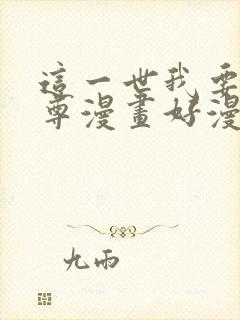 這一世我要
尊漫畫好漫
九雨